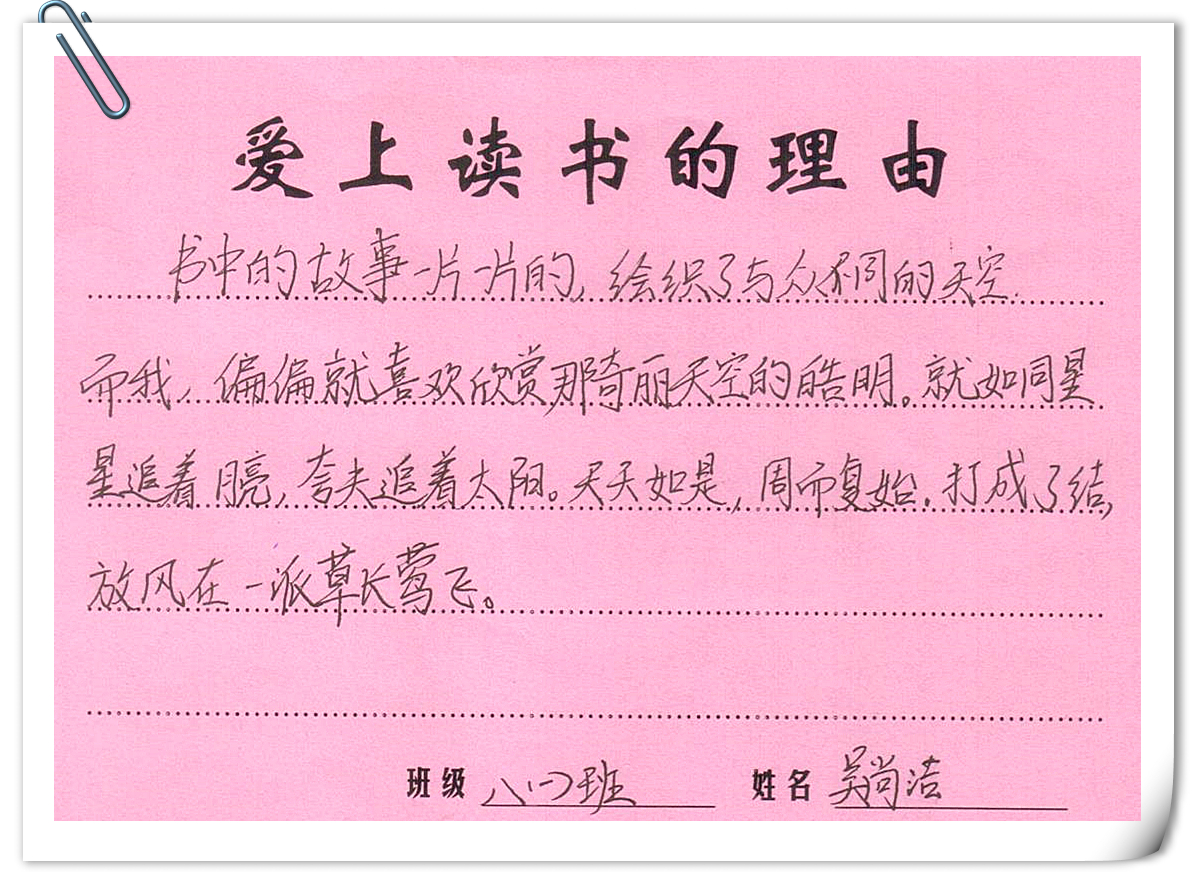 爱上读书的理由
书中的故事一片一片的,绘织了与众不同的天空.
而我,偏偏就喜欢欣赏那奇丽天空的皓明。就如同星
星追着月亮,夸夫追着太阳。天天如是,周而复始.打成了结,
放风在一派草长莺飞。
班级 八(一)班 姓名 吴尚洁